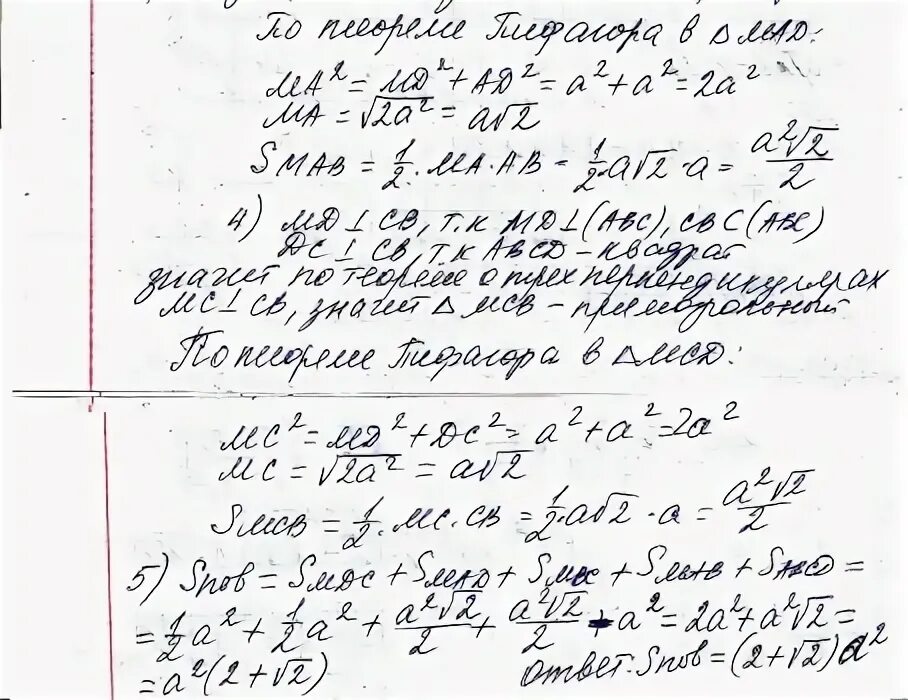 По теореме Пифагора в △MAD:
MA² = MD² + AD² = a² + a² = 2a²
MA = √2a² = a√2
S MAB = 1/2 · MA · AB = 1/2 · a√2 · a = a²√2/2
4) MD ⊥ CB, т.к MD ⊥ (ABC), CB ⊂ (ABC)
DC ⊥ CB, т.к ABCD – квадрат
значит по теореме о трех перпендикулярах
MC ⊥ CB, значит △ MCB – прямоугольный
По теореме Пифагора в △MCD:
MC² = MD² + DC² = a² + a² = 2a²
MC = √2a² = a√2
S MCB = 1/2 · MC · CB = 1/2 · a√2 · a = a²√2/2
5) Sпов = S MDC + S MAD + S + S MAB + S ABCD =
= 1/2 a² + 1/2 a² + a²√2/2 + a²√2/2 + a² = 2a² + a²√2 =
= a²(2 + √2)
Ответ: Sпов = (2 + √2) a²